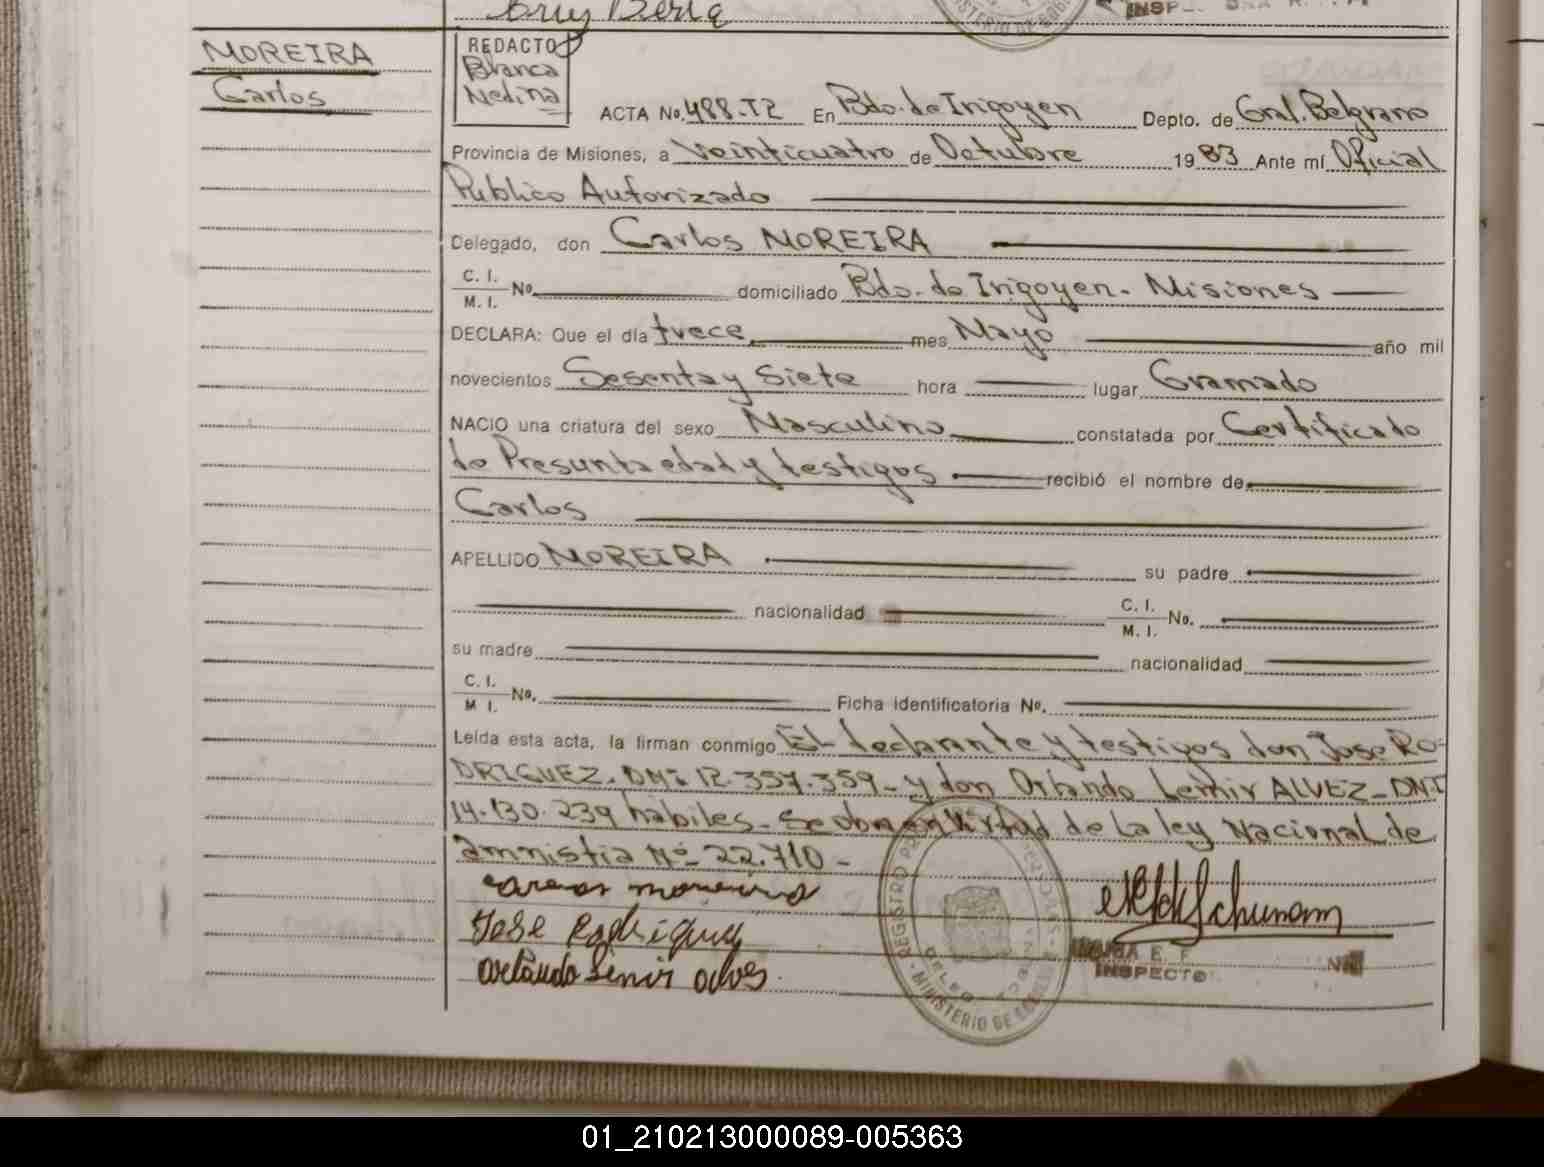 INSP
MOREIRA
Carlos
REDACTO
Blanca
Medina
ACTA No. 488.T2 En Bdo. de Irigoyen Depto. de Gral. Belgrano
Provincia de Misiones, a Veinticuatro de Octubre 1983 Ante mí Oficial
Publico Autorizado
Delegado, don Carlos MOREIRA
C. I.
M. I. No. domiciliado Bdo. de Irigoyen - Misiones
DECLARA: Que el día trece mes Mayo año mil
novecientos Sesenta y Siete hora lugar Gramado
NACIO una criatura del sexo Masculino constatada por Certificado
de Presunta edad y testigos recibió el nombre de
Carlos
APELLIDO MOREIRA su padre
nacionalidad C. I.
M. I. No.
su madre nacionalidad
C. I.
M I. No. Ficha identificatoria No.
Leída esta acta, la firman conmigo El declarante y testigos don Jose RO-
DRIGUEZ. DNI 12.357.359 - y don Orlando Lemir ALVEZ - DNI
14.130.239 habiles - Se obra en virtud de la ley Nacional de
amnistia Nº 22.710 -
carlos moreira
Jose Rodriguez
Orlando Lemir alves.
Schumann
REGISTRO
MINISTERIO DE
E. F.
INSPECTO
01_210213000089-005363